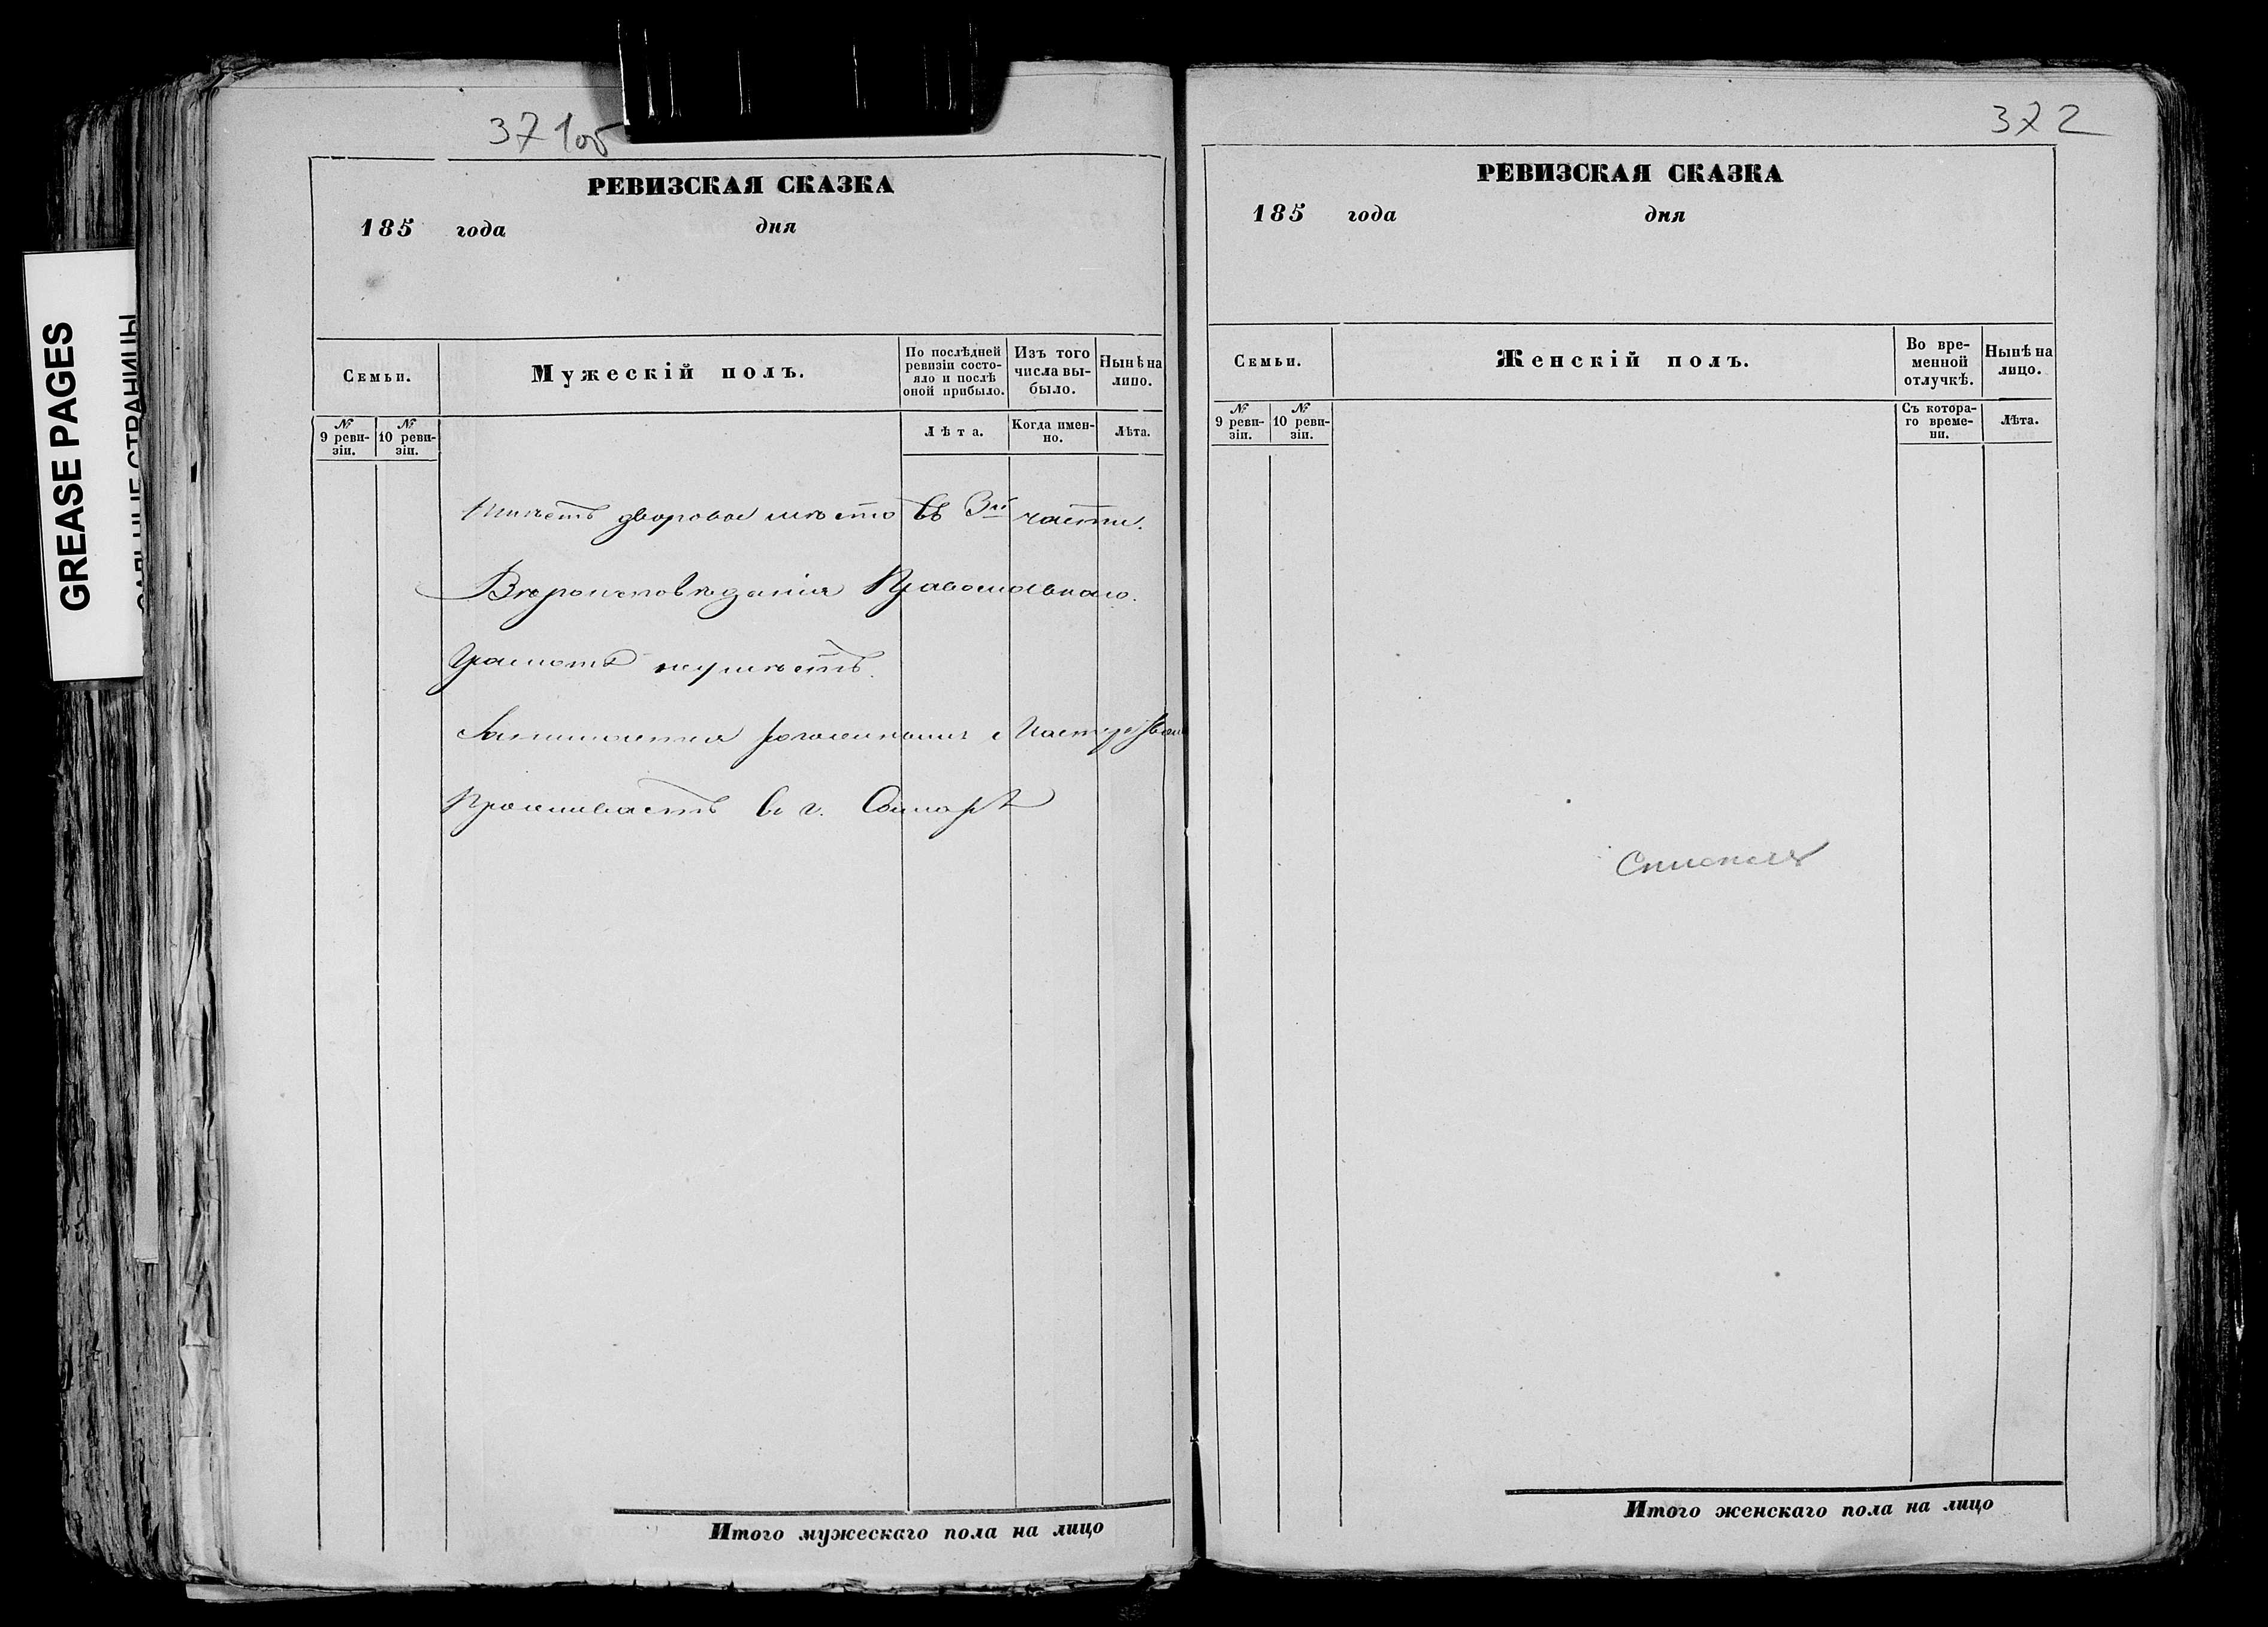 GREASE PAGES
371об
РЕВИЗСКАЯ СКАЗКА
185 года дня
Семьи.
Мужескій полъ.
По послѣдней ревизіи состояло и послѣ оной прибыло.
Изъ того числа выбыло.
Нынѣ на лицо.
№ 9 ревизіи.
№ 10 ревизіи.
Лѣта.
Когда именно.
Лѣта.
Имѣетъ дворовое мѣсто въ 3й части.
Вѣроисповѣданія Православнаго.
Грамотѣ неумѣетъ.
Занимается
Проживаетъ въ г. Самарѣ
Итого мужескаго пола на лицо
372
РЕВИЗСКАЯ СКАЗКА
185 года дня
Семьи.
Женскій полъ.
Во временной отлучкѣ.
Нынѣ на лицо.
№ 9 ревизіи.
№ 10 ревизіи.
Съ котораго времени.
Лѣта.
Итого женскаго пола на лицо